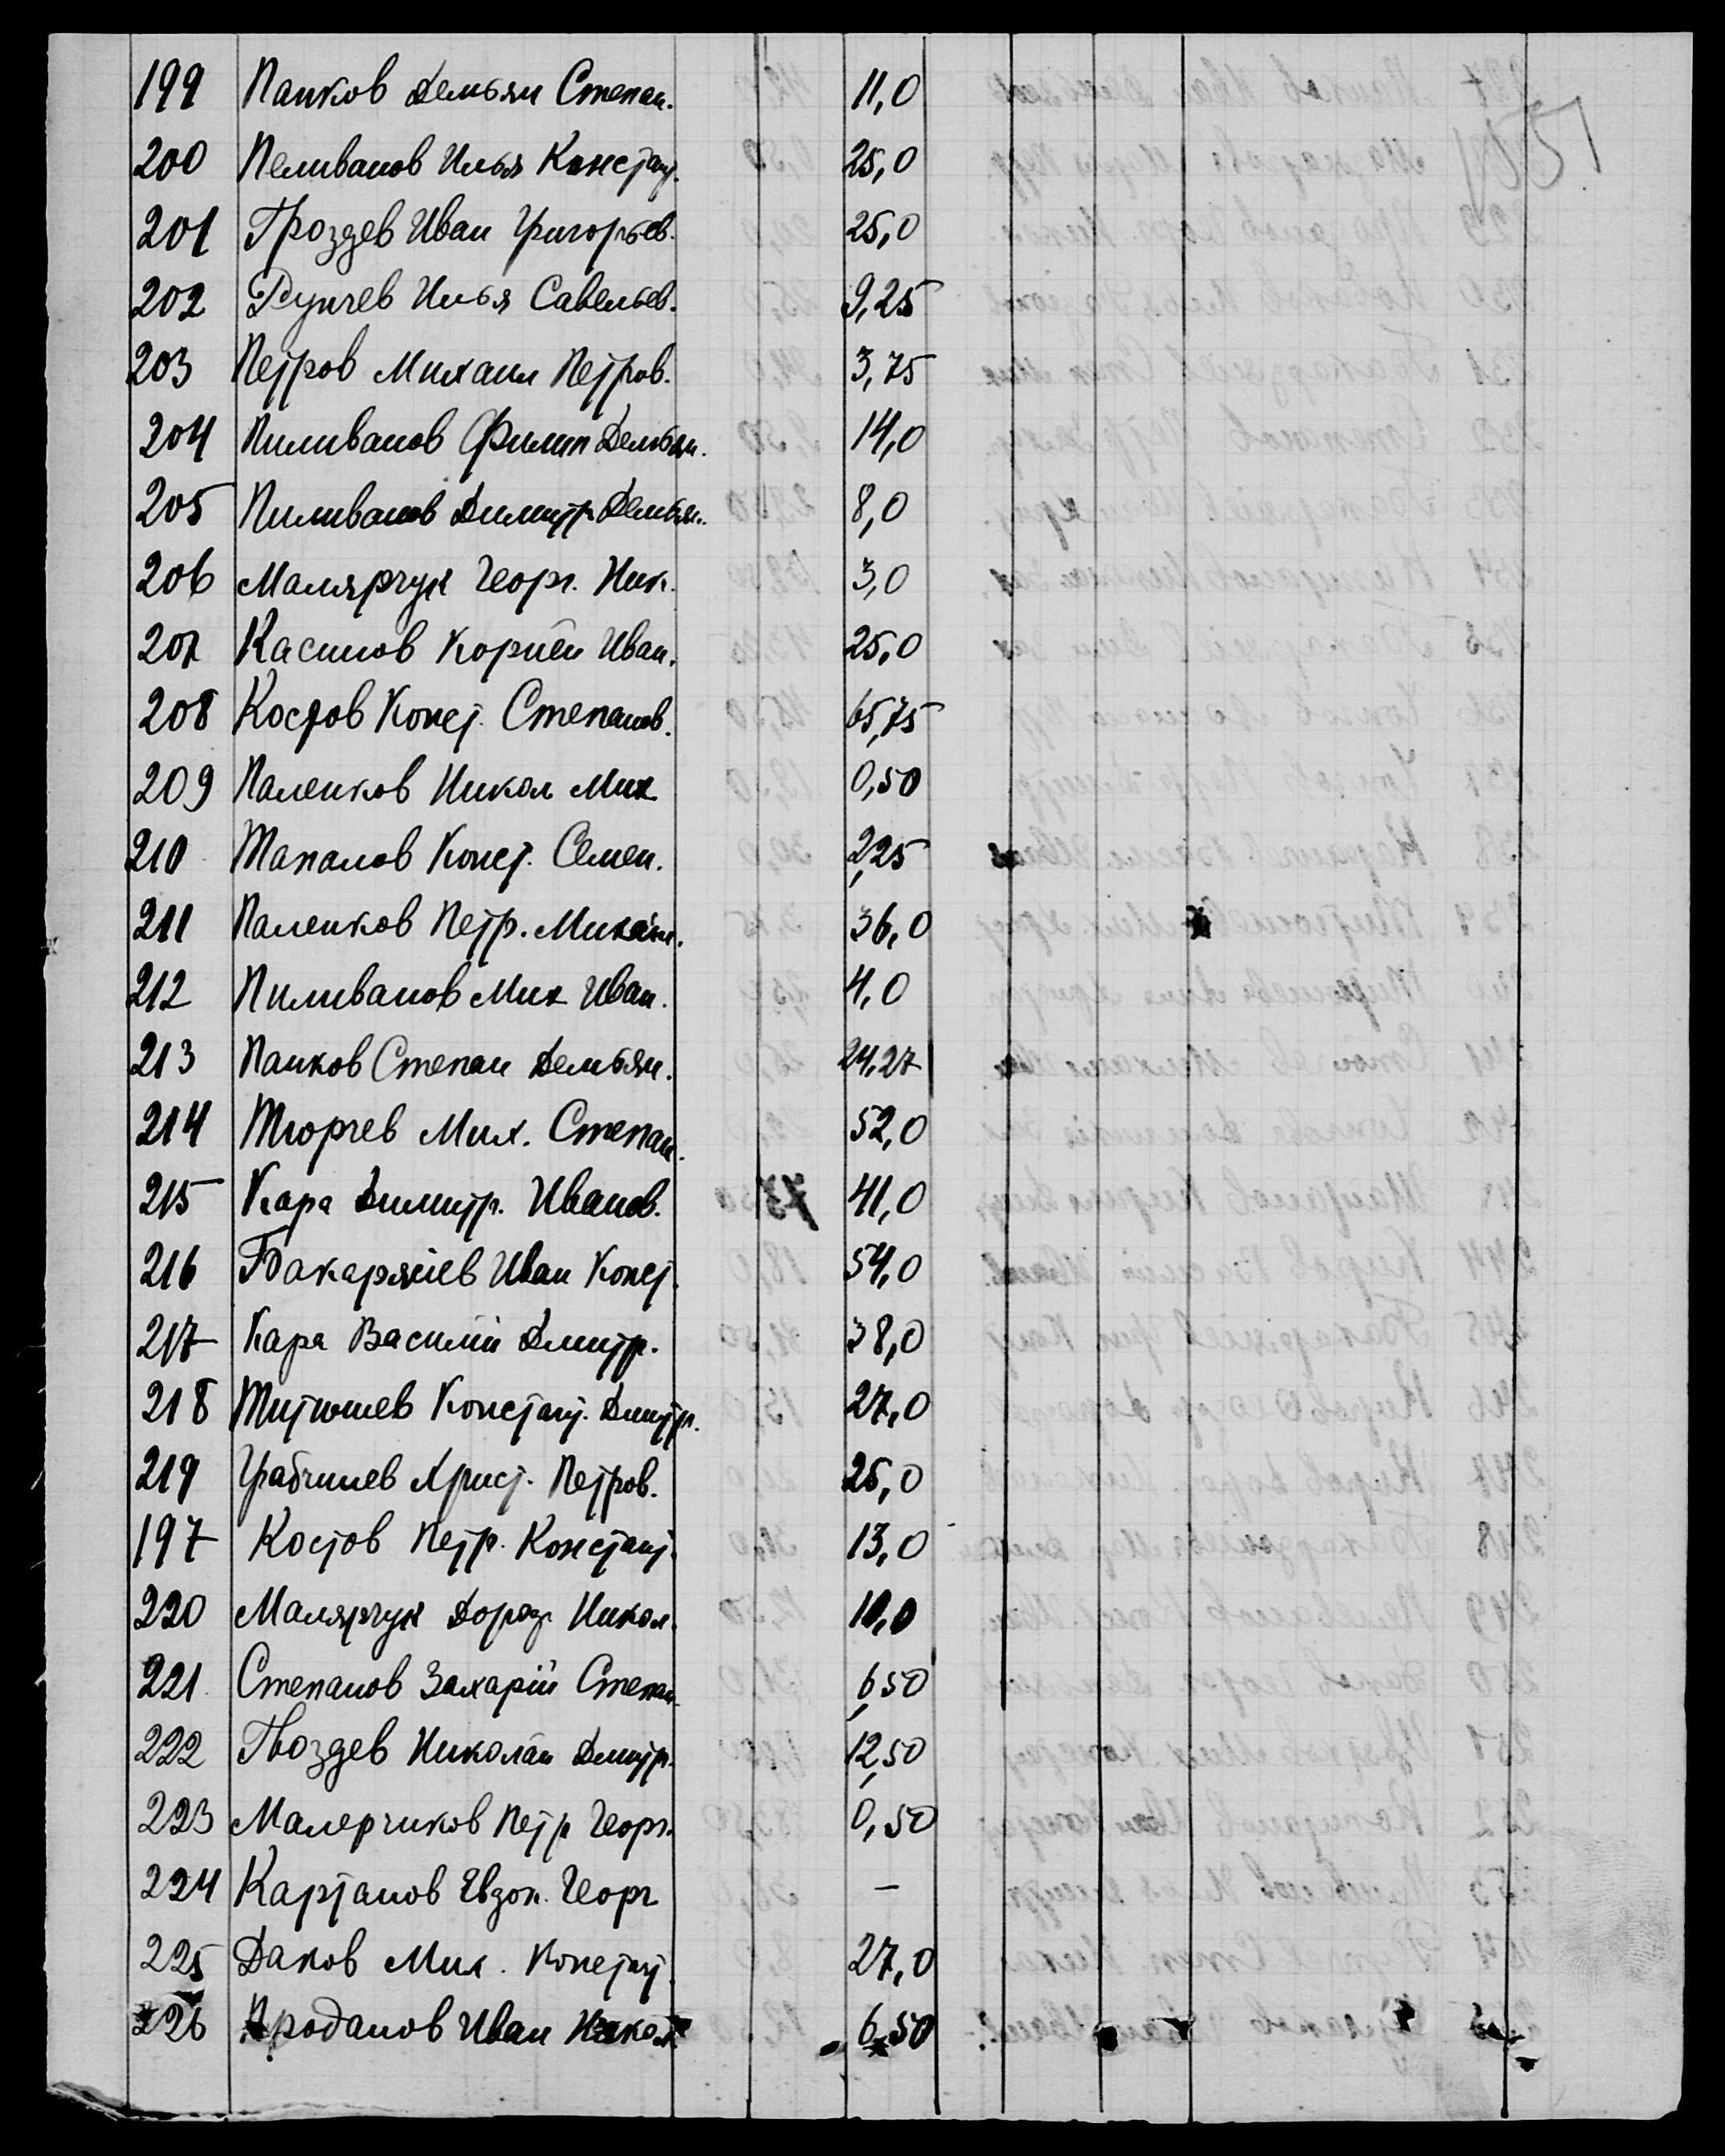 199 Панков Демьян Степан. 11,0
200 Пеливанов Илья Констант. 25,0
201 Гроздев Иван Григорьев. 25,0
202 Рупчев Илья Савельев. 9,25
203 Петров Михаил Петров. 3,75
204 Пиливанов Филип Демьян. 14,0
205 Пиливанов Димитр Демьян. 8,0
206 Малярчук Георг. Ник. 3,0
207 Касимов Корней Иван. 25,0
208 Костов Конст. Степанов. 65,75
209 Паленков Никол Мих 0,50
210 Тапалов Конст. Семен. 2,25
211 Паленков Петр. Михайл. 36,0
212 Пиливанов Мих Иван. 4,0
213 Панков Степан Демьян. 24,27
214 Тюрчев Мих. Степан. 52,0
215 Кара Димитр. Иванов. 41,0
216 Бакаржиев Иван Конст. 54,0
217 Кара Василий Дмитр. 38,0
218 Титюшев Констант. Дмитр. 27,0
219 Грабчилев Христ. Петров. 25,0
197 Костов Петр. Констант. 13,0
220 Малярчук Дорот. Никол. 10,0
221 Степанов Захарий Степан. 6,50
222 Гвоздев Николай Дмитр. 12,50
223 Малерчиков Петр Георг. 0,50
224 Картанов Евдок. Георг –
225 Даков Мих. Констант. 27,0
226 Проданов Иван Никол 6,50